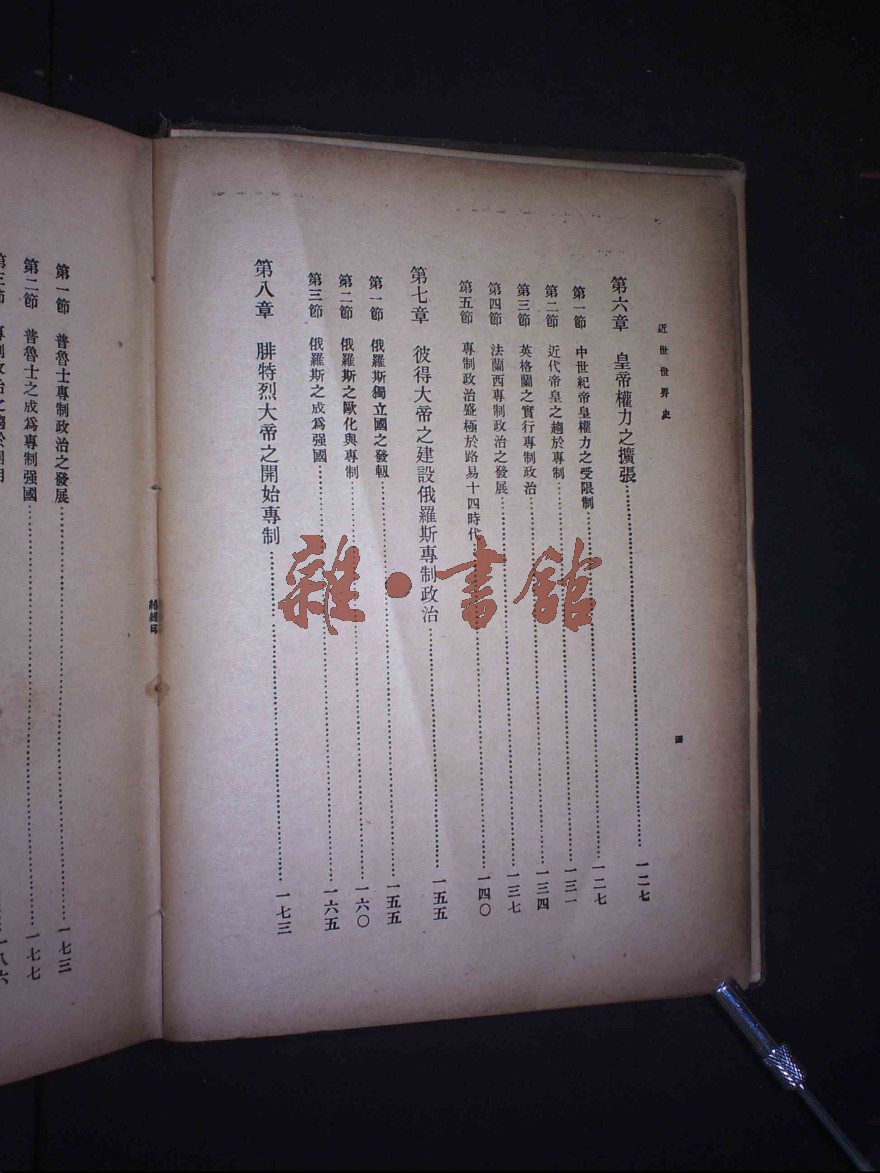 近世世界史
四
第六章　皇帝權力之擴張……一二七
第一節　中世紀帝皇權力之受限制……一二七
第二節　近代帝皇之趨於專制……一三一
第三節　英格蘭之實行專制政治……一三四
第四節　法蘭西專制政治之發展……一三七
第五節　專制政治盛極於路易十四時代……一四〇
第七章　彼得大帝之建設俄羅斯專制政治……一五五
第一節　俄羅斯獨立國之發軔……一五五
第二節　俄羅斯之歐化與專制……一六〇
第三節　俄羅斯之成爲强國……一六五
第八章　腓特烈大帝之開始專制……一七三
第一節　普魯士專制政治之發展……一七三
第二節　普魯士之成爲專制强國……一七七
第三節　專制政治之趨於開明……一八六
雜·書館